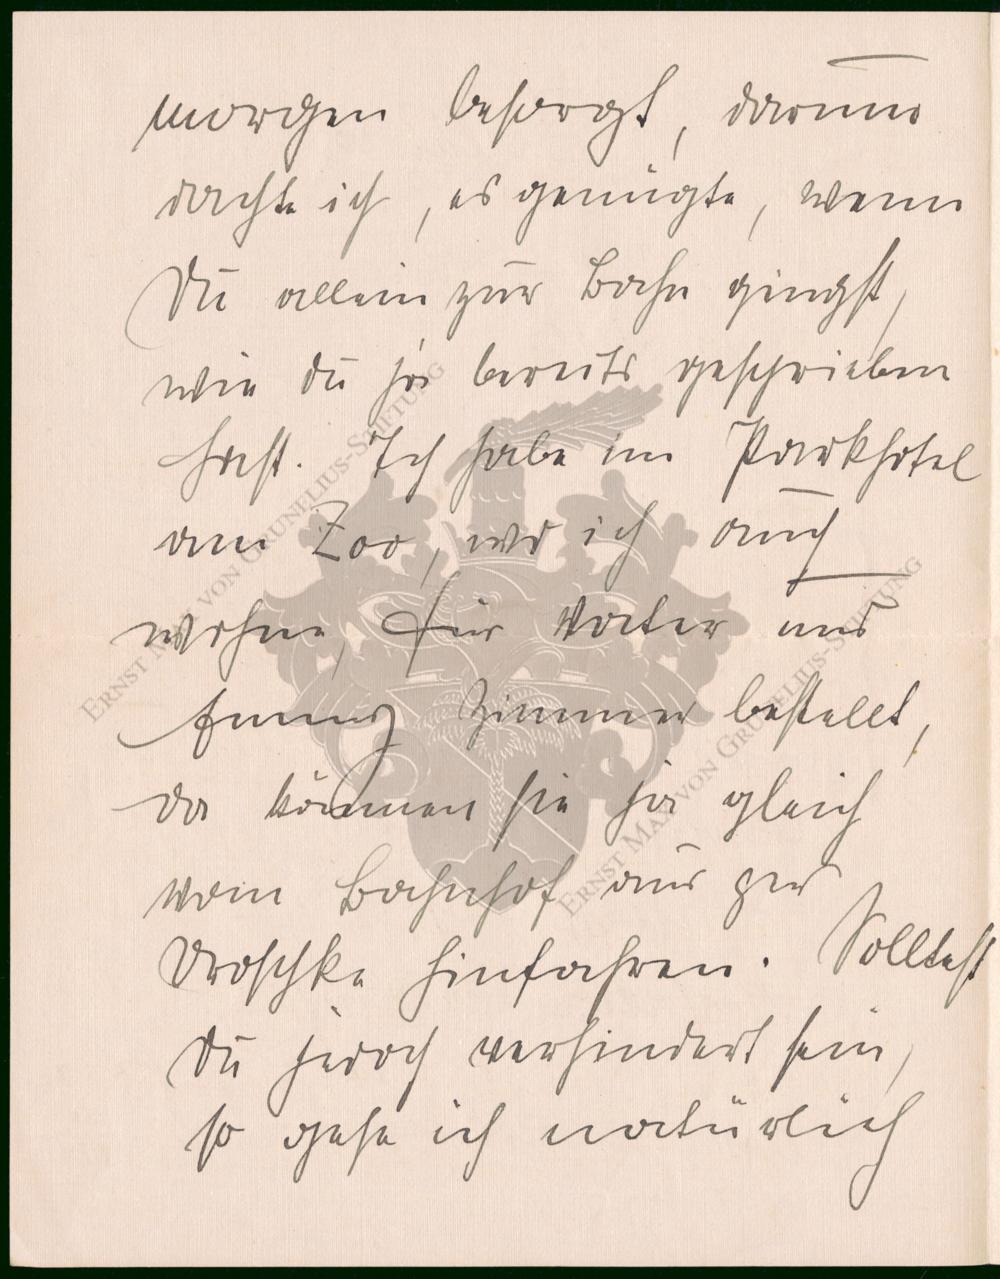 morgen besorgt, darum
dachte ich, es genügte, wenn
Du allein zur Bahn gingst,
wie du ja bereits geschrieben
hast. Ich habe im Parkhotel
am Zoo, wo ich auch
wohne, für Vater und
Emmy Zimmer bestellt,
da können sie ja gleich
vom Bahnhof aus per
Droschke hinfahren. Solltest
Du jedoch verhindert sein,
so gehe ich natürlich
ERNST MAX VON GRUNELIUS-STIFTUNG
ERNST MAX VON GRUNELIUS-STIFTUNG